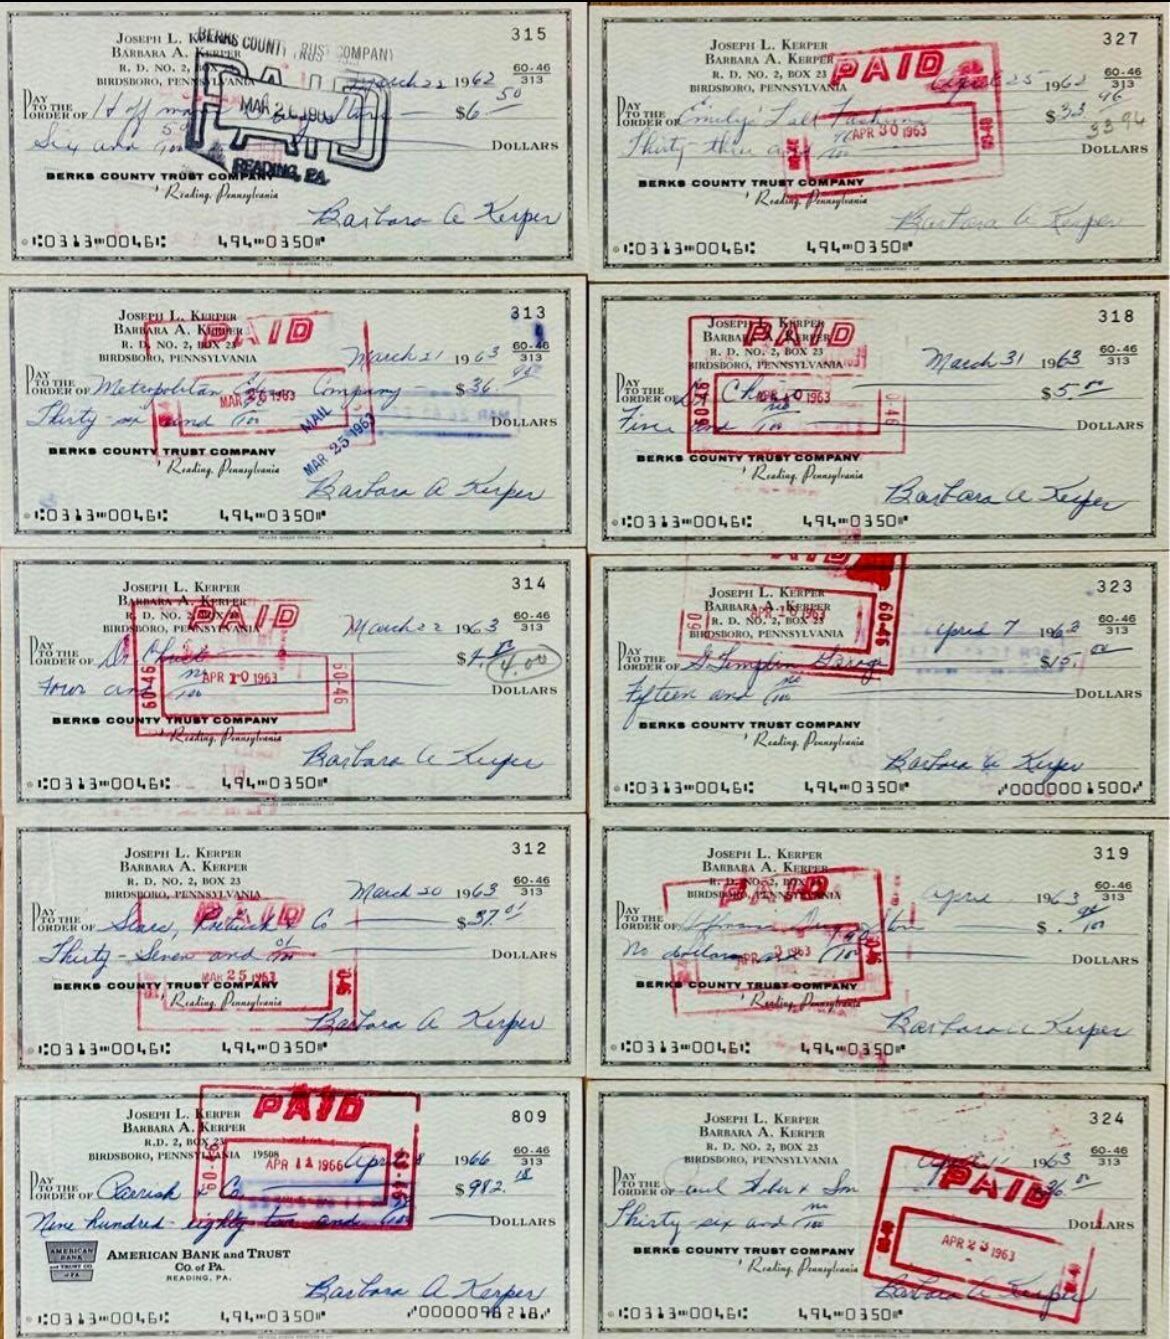 315
JOSEPH L. KERPER
BARBARA A. KERPER
R. D. NO. 2, BOX 23
BIRDSBORO, PENNSYLVANIA
BERKS COUNTY TRUST COMPANY
PAID
MAR 26
READING, PA.
March 22 1962
60-46
313
PAY TO THE ORDER OF
$6 50
Six and 50/100
DOLLARS
BERKS COUNTY TRUST COMPANY
Reading, Pennsylvania
Barbara A Kerper
0313 0046
494 0350
327
JOSEPH L. KERPER
BARBARA A. KERPER
R. D. NO. 2, BOX 23
BIRDSBORO, PENNSYLVANIA
PAID
April 25 1962
60-46
313
PAY TO THE ORDER OF Emily's
$33. 96
33 94
APR 30 1963
Thirty-three and
DOLLARS
BERKS COUNTY TRUST COMPANY
Reading, Pennsylvania
Barbara A Kerper
0313 0046
494 0350
313
JOSEPH L. KERPER
BARBARA A. KERPER
R. D. NO. 2, BOX 23
BIRDSBORO, PENNSYLVANIA
PAID
March 21 1963
60-46
313
PAY TO THE ORDER OF Metropolitan Company
$36.
MAR 26 1963
Thirty-six and
DOLLARS
MAIL
MAR 25 1963
BERKS COUNTY TRUST COMPANY
Reading, Pennsylvania
Barbara A Kerper
0313 0046
494 0350
318
JOSEPH L. KERPER
BARBARA A. KERPER
R. D. NO. 2, BOX 23
BIRDSBORO, PENNSYLVANIA
PAID
March 31 1963
60-46
313
PAY TO THE ORDER OF Dr
$5.00
APR 10 1963
60-46
Five and no/100
DOLLARS
BERKS COUNTY TRUST COMPANY
Reading, Pennsylvania
Barbara A Kerper
0313 0046
494 0350
314
JOSEPH L. KERPER
BARBARA A. KERPER
R. D. NO. 2, BOX 23
BIRDSBORO, PENNSYLVANIA
PAID
March 22 1963
60-46
313
PAY TO THE ORDER OF Dr
$4. 4.00
APR 10 1963
60-46
60-46
Four and no/100
DOLLARS
BERKS COUNTY TRUST COMPANY
Reading, Pennsylvania
Barbara A Kerper
0313 0046
494 0350
323
JOSEPH L. KERPER
BARBARA A. KERPER
R. D. NO. 2, BOX 23
BIRDSBORO, PENNSYLVANIA
PAID
APR 10 1963
60-46
April 7 1963
60-46
313
PAY TO THE ORDER OF G Templin Garage
$15.00
Fifteen and no/100
DOLLARS
BERKS COUNTY TRUST COMPANY
Reading, Pennsylvania
Barbara A Kerper
0313 0046
494 0350
0000001500
312
JOSEPH L. KERPER
BARBARA A. KERPER
R. D. NO. 2, BOX 23
BIRDSBORO, PENNSYLVANIA
PAID
March 20 1963
60-46
313
PAY TO THE ORDER OF Sears, Roebuck & Co
$37.01
Thirty-Seven and 01/100
DOLLARS
MAR 25 1963
BERKS COUNTY TRUST COMPANY
Reading, Pennsylvania
Barbara A Kerper
0313 0046
494 0350
319
JOSEPH L. KERPER
BARBARA A. KERPER
R. D. NO. 2, BOX 23
BIRDSBORO, PENNSYLVANIA
PAID
April 1963
60-46
313
PAY TO THE ORDER OF
$
No dollars and
DOLLARS
APR 3 1963
BERKS COUNTY TRUST COMPANY
Reading, Pennsylvania
Barbara A Kerper
0313 0046
494 0350
809
JOSEPH L. KERPER
BARBARA A. KERPER
R.D. 2, BOX 23
BIRDSBORO, PENNSYLVANIA 19508
PAID
APR 11 1966
60-46
April 8 1966
60-46
313
PAY TO THE ORDER OF Parrish & Co
$982.18
Nine hundred-eighty two and 18/100
DOLLARS
AMERICAN BANK and TRUST CO of PA
AMERICAN BANK and TRUST
CO. of PA.
READING, PA.
Barbara A Kerper
0313 0046
494 0350
0000098218
324
JOSEPH L. KERPER
BARBARA A. KERPER
R. D. NO. 2, BOX 23
BIRDSBORO, PENNSYLVANIA
PAID
April 11 1963
60-46
313
PAY TO THE ORDER OF & Son
36.00
Thirty-six and no/100
DOLLARS
APR 23 1963
BERKS COUNTY TRUST COMPANY
Reading, Pennsylvania
Barbara A Kerper
0313 0046
494 0350